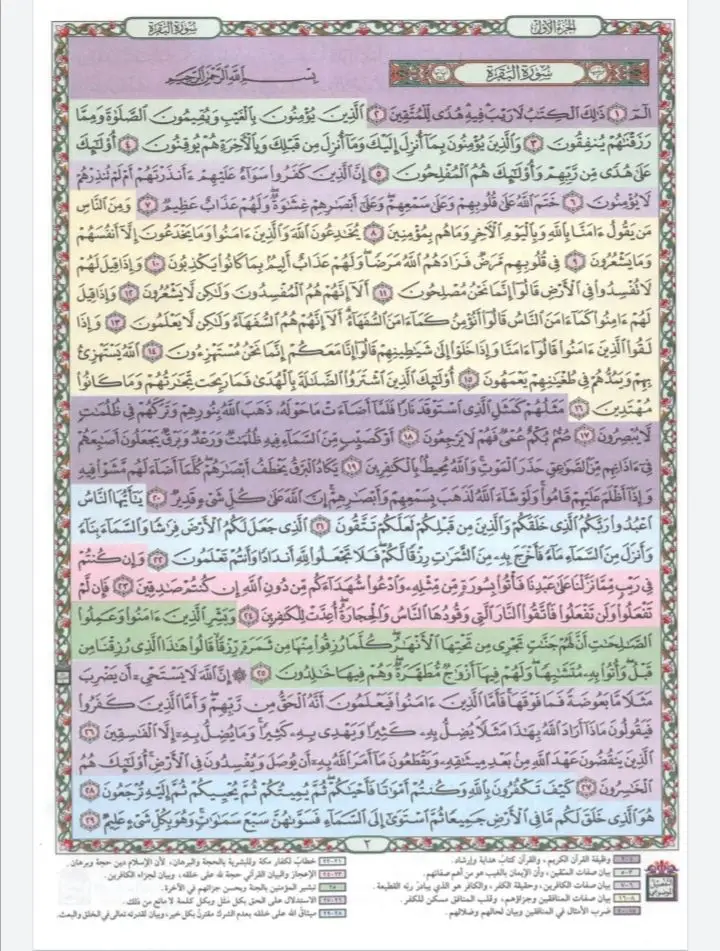 سُورَةُ البَقَرَةِ
الجزء الأول
سُورَةُ البَقَرَةِ
بِسْمِ اللَّهِ الرَّحْمَٰنِ الرَّحِيمِ
الٓمٓ ١ ذَٰلِكَ الْكِتَٰبُ لَا رَيْبَ فِيهِ هُدًى لِّلْمُتَّقِينَ ٢ الَّذِينَ يُؤْمِنُونَ بِالْغَيْبِ وَيُقِيمُونَ الصَّلَوٰةَ وَمِمَّا
رَزَقْنَٰهُمْ يُنفِقُونَ ٣ وَالَّذِينَ يُؤْمِنُونَ بِمَا أُنزِلَ إِلَيْكَ وَمَا أُنزِلَ مِن قَبْلِكَ وَبِالْآخِرَةِ هُمْ يُوقِنُونَ ٤ أُولَٰئِكَ
عَلَىٰ هُدًى مِّن رَّبِّهِمْ وَأُولَٰئِكَ هُمُ الْمُفْلِحُونَ ٥ إِنَّ الَّذِينَ كَفَرُوا سَوَاءٌ عَلَيْهِمْ ءَأَنذَرْتَهُمْ أَمْ لَمْ تُنذِرْهُمْ
لَا يُؤْمِنُونَ ٦ خَتَمَ اللَّهُ عَلَىٰ قُلُوبِهِمْ وَعَلَىٰ سَمْعِهِمْ وَعَلَىٰ أَبْصَٰرِهِمْ غِشَٰوَةٌ وَلَهُمْ عَذَابٌ عَظِيمٌ ٧ وَمِنَ النَّاسِ
مَن يَقُولُ ءَامَنَّا بِاللَّهِ وَبِالْيَوْمِ الْآخِرِ وَمَا هُم بِمُؤْمِنِينَ ٨ يُخَٰدِعُونَ اللَّهَ وَالَّذِينَ ءَامَنُوا وَمَا يَخْدَعُونَ إِلَّا أَنفُسَهُمْ
وَمَا يَشْعُرُونَ ٩ فِي قُلُوبِهِم مَّرَضٌ فَزَادَهُمُ اللَّهُ مَرَضًا وَلَهُمْ عَذَابٌ أَلِيمٌ بِمَا كَانُوا يَكْذِبُونَ ١٠ وَإِذَا قِيلَ لَهُمْ
لَا تُفْسِدُوا فِي الْأَرْضِ قَالُوا إِنَّمَا نَحْنُ مُصْلِحُونَ ١١ أَلَا إِنَّهُمْ هُمُ الْمُفْسِدُونَ وَلَٰكِن لَّا يَشْعُرُونَ ١٢ وَإِذَا قِيلَ
لَهُمْ ءَامِنُوا كَمَا ءَامَنَ النَّاسُ قَالُوا أَنُؤْمِنُ كَمَا ءَامَنَ السُّفَهَاءُ أَلَا إِنَّهُمْ هُمُ السُّفَهَاءُ وَلَٰكِن لَّا يَعْلَمُونَ ١٣ وَإِذَا
لَقُوا الَّذِينَ ءَامَنُوا قَالُوا ءَامَنَّا وَإِذَا خَلَوْا إِلَىٰ شَيَٰطِينِهِمْ قَالُوا إِنَّا مَعَكُمْ إِنَّمَا نَحْنُ مُسْتَهْزِءُونَ ١٤ اللَّهُ يَسْتَهْزِئُ
بِهِمْ وَيَمُدُّهُمْ فِي طُغْيَٰنِهِمْ يَعْمَهُونَ ١٥ أُولَٰئِكَ الَّذِينَ اشْتَرَوُا الضَّلَٰلَةَ بِالْهُدَىٰ فَمَا رَبِحَت تِّجَٰرَتُهُمْ وَمَا كَانُوا
مُهْتَدِينَ ١٦ مَثَلُهُمْ كَمَثَلِ الَّذِي اسْتَوْقَدَ نَارًا فَلَمَّا أَضَاءَتْ مَا حَوْلَهُ ذَهَبَ اللَّهُ بِنُورِهِمْ وَتَرَكَهُمْ فِي ظُلُمَٰتٍ
لَّا يُبْصِرُونَ ١٧ صُمٌّ بُكْمٌ عُمْيٌ فَهُمْ لَا يَرْجِعُونَ ١٨ أَوْ كَصَيِّبٍ مِّنَ السَّمَاءِ فِيهِ ظُلُمَٰتٌ وَرَعْدٌ وَبَرْقٌ يَجْعَلُونَ أَصَٰبِعَهُمْ
فِي ءَاذَانِهِم مِّنَ الصَّوَٰعِقِ حَذَرَ الْمَوْتِ وَاللَّهُ مُحِيطٌ بِالْكَٰفِرِينَ ١٩ يَكَادُ الْبَرْقُ يَخْطَفُ أَبْصَٰرَهُمْ كُلَّمَا أَضَاءَ لَهُم مَّشَوْا فِيهِ
وَإِذَا أَظْلَمَ عَلَيْهِمْ قَامُوا وَلَوْ شَاءَ اللَّهُ لَذَهَبَ بِسَمْعِهِمْ وَأَبْصَٰرِهِمْ إِنَّ اللَّهَ عَلَىٰ كُلِّ شَيْءٍ قَدِيرٌ ٢٠ يَٰأَيُّهَا النَّاسُ
اعْبُدُوا رَبَّكُمُ الَّذِي خَلَقَكُمْ وَالَّذِينَ مِن قَبْلِكُمْ لَعَلَّكُمْ تَتَّقُونَ ٢١ الَّذِي جَعَلَ لَكُمُ الْأَرْضَ فِرَٰشًا وَالسَّمَاءَ بِنَاءً
وَأَنزَلَ مِنَ السَّمَاءِ مَاءً فَأَخْرَجَ بِهِ مِنَ الثَّمَرَٰتِ رِزْقًا لَّكُمْ فَلَا تَجْعَلُوا لِلَّهِ أَندَادًا وَأَنتُمْ تَعْلَمُونَ ٢٢ وَإِن كُنتُمْ
فِي رَيْبٍ مِّمَّا نَزَّلْنَا عَلَىٰ عَبْدِنَا فَأْتُوا بِسُورَةٍ مِّن مِّثْلِهِ وَادْعُوا شُهَدَاءَكُم مِّن دُونِ اللَّهِ إِن كُنتُمْ صَٰدِقِينَ ٢٣ فَإِن لَّمْ
تَفْعَلُوا وَلَن تَفْعَلُوا فَاتَّقُوا النَّارَ الَّتِي وَقُودُهَا النَّاسُ وَالْحِجَارَةُ أُعِدَّتْ لِلْكَٰفِرِينَ ٢٤ وَبَشِّرِ الَّذِينَ ءَامَنُوا وَعَمِلُوا
الصَّٰلِحَٰتِ أَنَّ لَهُمْ جَنَّٰتٍ تَجْرِي مِن تَحْتِهَا الْأَنْهَٰرُ كُلَّمَا رُزِقُوا مِنْهَا مِن ثَمَرَةٍ رِّزْقًا قَالُوا هَٰذَا الَّذِي رُزِقْنَا مِن
قَبْلُ وَأُتُوا بِهِ مُتَشَٰبِهًا وَلَهُمْ فِيهَا أَزْوَٰجٌ مُّطَهَّرَةٌ وَهُمْ فِيهَا خَٰلِدُونَ ٢٥ ۞ إِنَّ اللَّهَ لَا يَسْتَحْيِي أَن يَضْرِبَ
مَثَلًا مَّا بَعُوضَةً فَمَا فَوْقَهَا فَأَمَّا الَّذِينَ ءَامَنُوا فَيَعْلَمُونَ أَنَّهُ الْحَقُّ مِن رَّبِّهِمْ وَأَمَّا الَّذِينَ كَفَرُوا
فَيَقُولُونَ مَاذَا أَرَادَ اللَّهُ بِهَٰذَا مَثَلًا يُضِلُّ بِهِ كَثِيرًا وَيَهْدِي بِهِ كَثِيرًا وَمَا يُضِلُّ بِهِ إِلَّا الْفَٰسِقِينَ ٢٦
الَّذِينَ يَنقُضُونَ عَهْدَ اللَّهِ مِن بَعْدِ مِيثَٰقِهِ وَيَقْطَعُونَ مَا أَمَرَ اللَّهُ بِهِ أَن يُوصَلَ وَيُفْسِدُونَ فِي الْأَرْضِ أُولَٰئِكَ هُمُ
الْخَٰسِرُونَ ٢٧ كَيْفَ تَكْفُرُونَ بِاللَّهِ وَكُنتُمْ أَمْوَٰتًا فَأَحْيَٰكُمْ ثُمَّ يُمِيتُكُمْ ثُمَّ يُحْيِيكُمْ ثُمَّ إِلَيْهِ تُرْجَعُونَ ٢٨
هُوَ الَّذِي خَلَقَ لَكُم مَّا فِي الْأَرْضِ جَمِيعًا ثُمَّ اسْتَوَىٰ إِلَى السَّمَاءِ فَسَوَّىٰهُنَّ سَبْعَ سَمَٰوَٰتٍ وَهُوَ بِكُلِّ شَيْءٍ عَلِيمٌ ٢٩
٢
وظيفة القرآن الكريم، والقرآن كتاب هداية وإرشاد.
٣-٥ بيان صفات المتقين، وأن الإيمان بالغيب هو من أهم صفاتهم.
٦-٧ بيان صفات الكافرين، وحقيقة الكفر، والكافر هو الذي يبادر ربه القطيعة.
٨-١٦ بيان صفات المنافقين وجزاؤهم، وقلب المنافق مسكن للكفر.
ضرب الأمثال في المنافقين وبيان لحالهم وضلالهم.
٢١-٢٢ خطاب لكفار مكة وللبشرية بالحجة والبرهان، لأن الإسلام دين حجة وبرهان.
٢٣-٢٤ الإعجاز والبيان القرآني حجة لله على خلقه، وبيان لجزاء الكافرين.
٢٥ تبشير المؤمنين بالجنة وبحسن جزائهم في الآخرة.
٢٦-٢٧ الاستدلال على الحق بكل مثل وبكل كلمة لا مانع من ذلك.
٢٨-٢٩ ميثاق الله على خلقه بعدم الشرك مقترن بكل خير، وبيان لقدرته تعالى في الخلق والبعث.